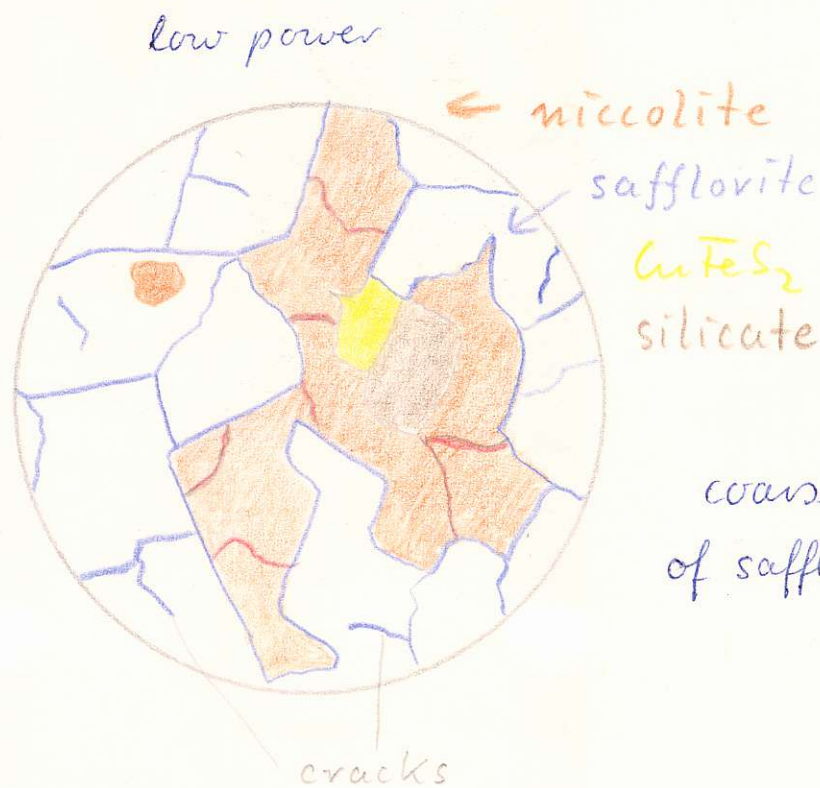 low power
niccolite
safflorite
CuFeS2
silicate
of
cracks